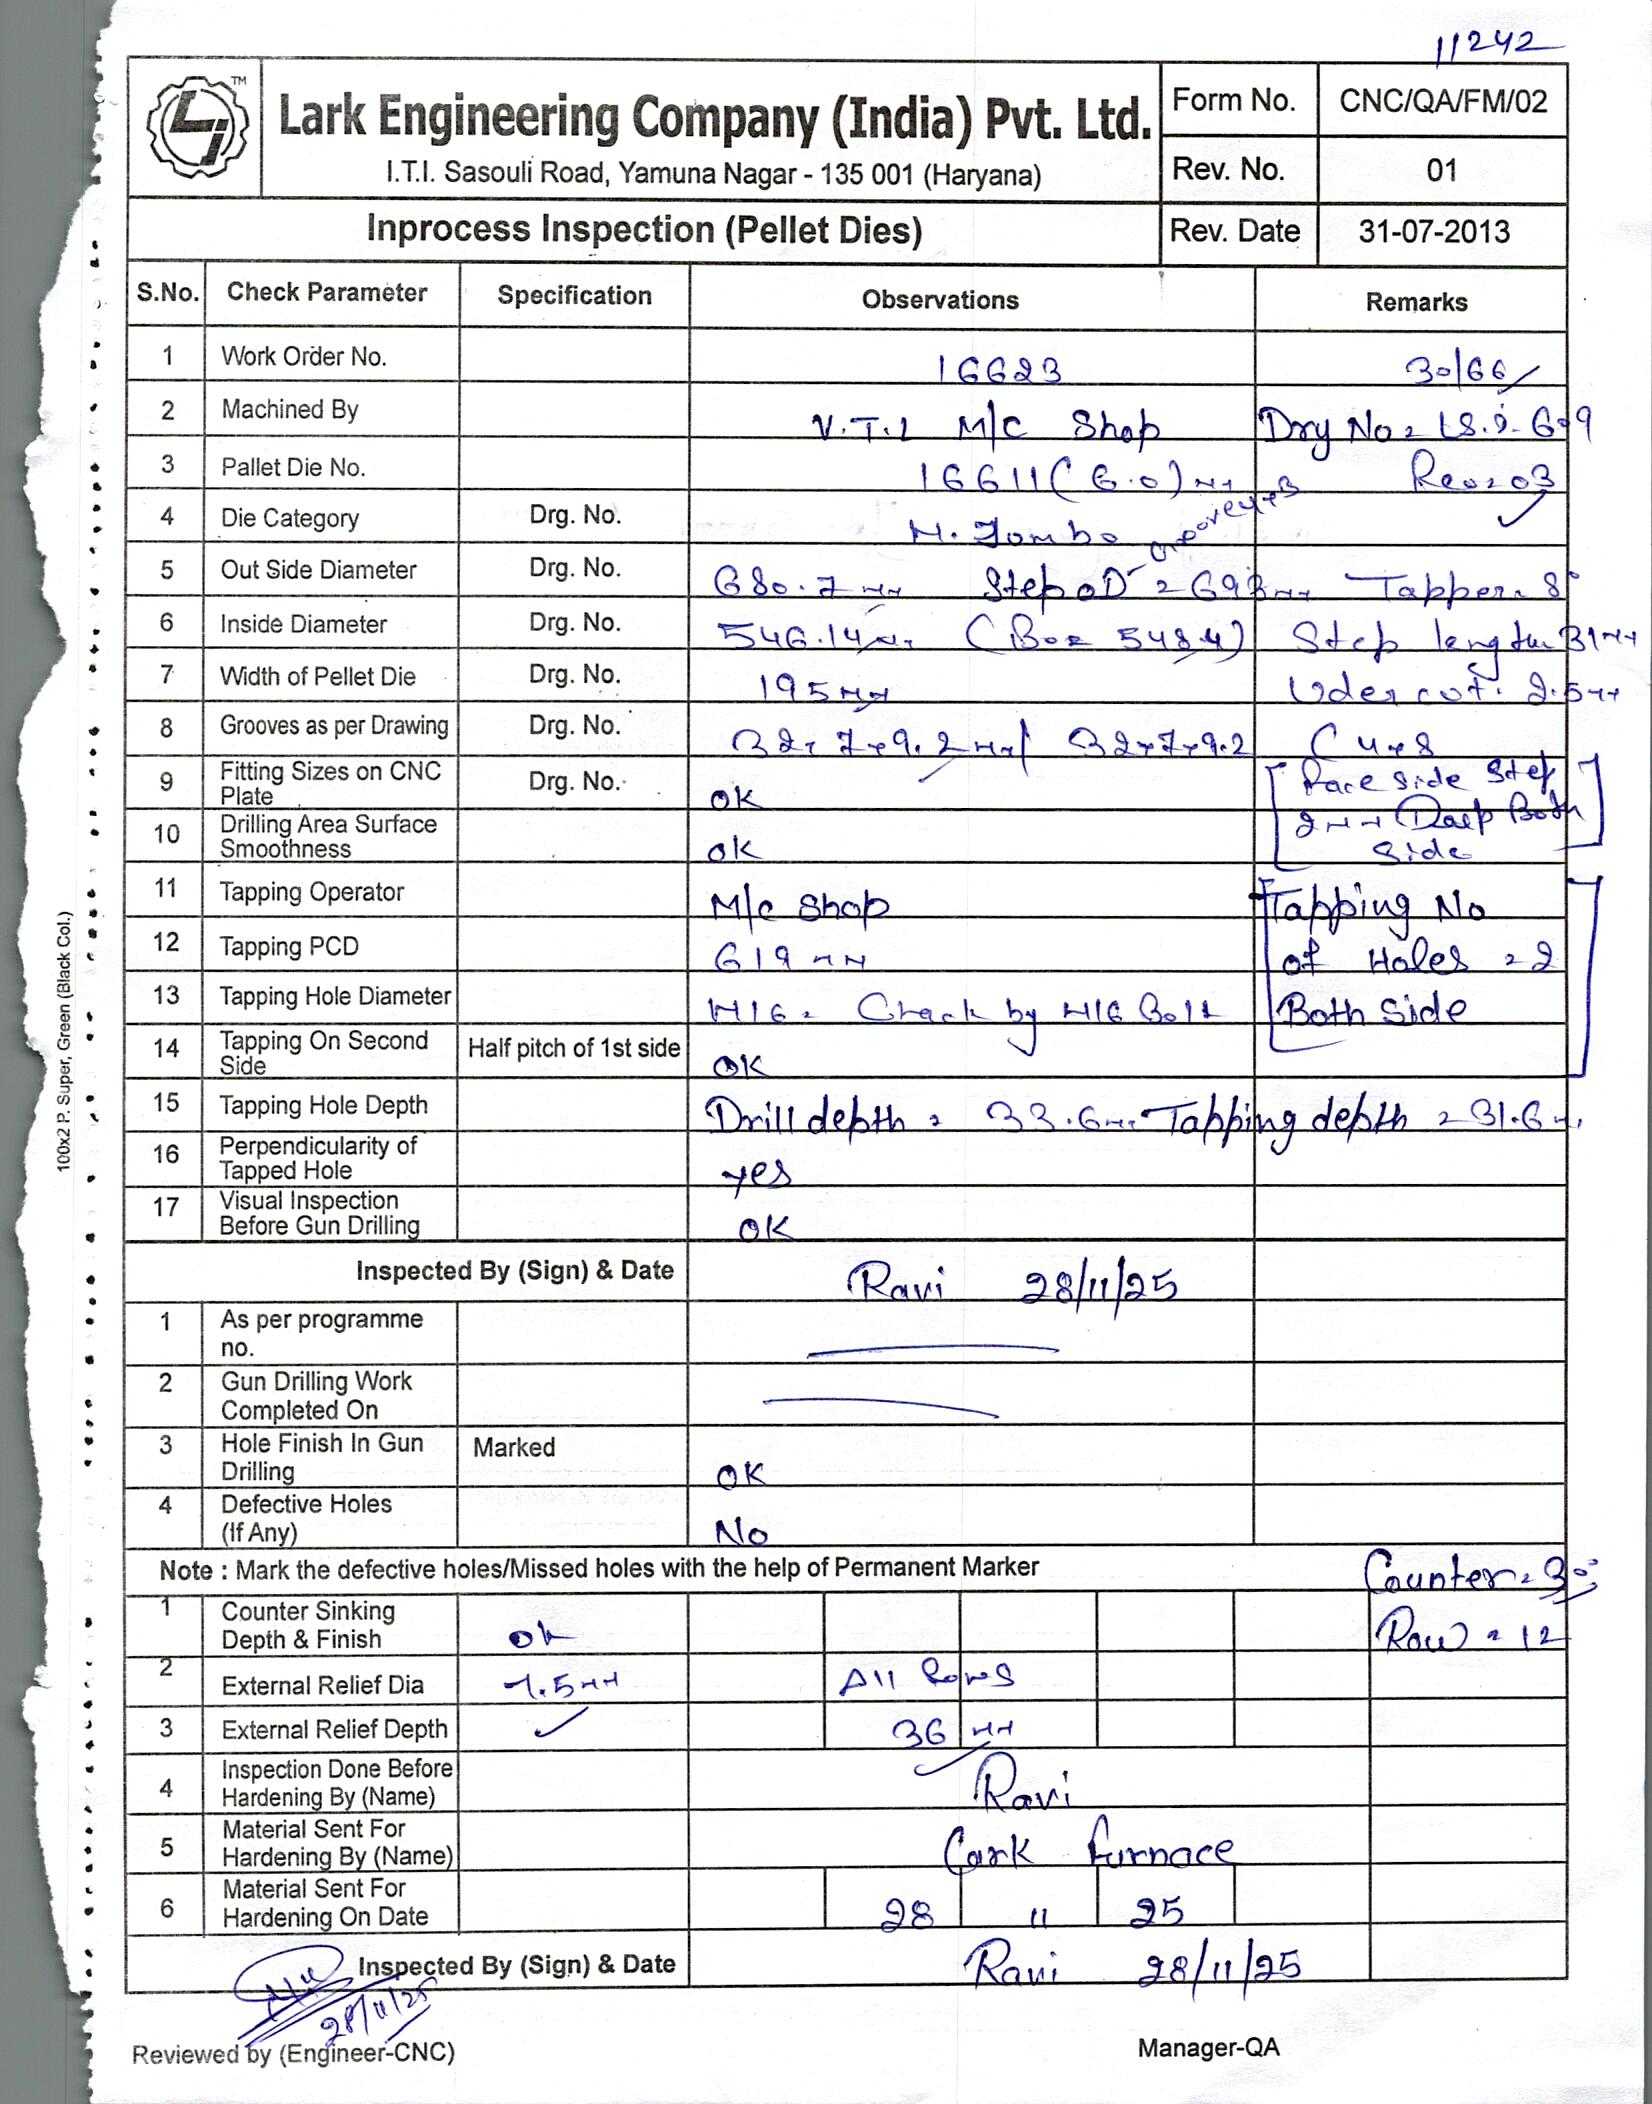 11242
TM
Lark Engineering Company (India) Pvt. Ltd.
I.T.I. Sasouli Road, Yamuna Nagar - 135 001 (Haryana)
Form No. CNC/QA/FM/02
Rev. No. 01
Inprocess Inspection (Pellet Dies) Rev. Date 31-07-2013
S.No. Check Parameter Specification Observations Remarks
1 Work Order No. 16623 30/66
2 Machined By V.T.L M/C Shop
3 Pallet Die No. 16611 (6.0)
4 Die Category Drg. No.
5 Out Side Diameter Drg. No. 680.7 Step OD
6 Inside Diameter Drg. No. 546.14 Step
7 Width of Pellet Die Drg. No. 195 cut
8 Grooves as per Drawing Drg. No. 32x7x9.2 / 32x7x9.2
9 Fitting Sizes on CNC Plate Drg. No. OK side Step
10 Drilling Area Surface Smoothness OK Both side
11 Tapping Operator M/C Shop Tapping No
12 Tapping PCD 619 of Holes = 2
13 Tapping Hole Diameter M16 = Check by M16 Bolt Both Side
14 Tapping On Second Side Half pitch of 1st side OK
15 Tapping Hole Depth Drill depth = 33.6 Tapping depth = 31.6
16 Perpendicularity of Tapped Hole yes
17 Visual Inspection Before Gun Drilling OK
Inspected By (Sign) & Date Ravi 28/11/25
1 As per programme no.
2 Gun Drilling Work Completed On
3 Hole Finish In Gun Drilling Marked OK
4 Defective Holes (If Any) No
Note : Mark the defective holes/Missed holes with the help of Permanent Marker Counter = 30
1 Counter Sinking Depth & Finish ok Row = 12
2 External Relief Dia 7.5 All Rows
3 External Relief Depth 36
4 Inspection Done Before Hardening By (Name) Ravi
5 Material Sent For Hardening By (Name) furnace
6 Material Sent For Hardening On Date 28 11 25
Inspected By (Sign) & Date Ravi 28/11/25
28/11/25
Reviewed by (Engineer-CNC) Manager-QA
100x2 P. Super, Green (Black Col.)